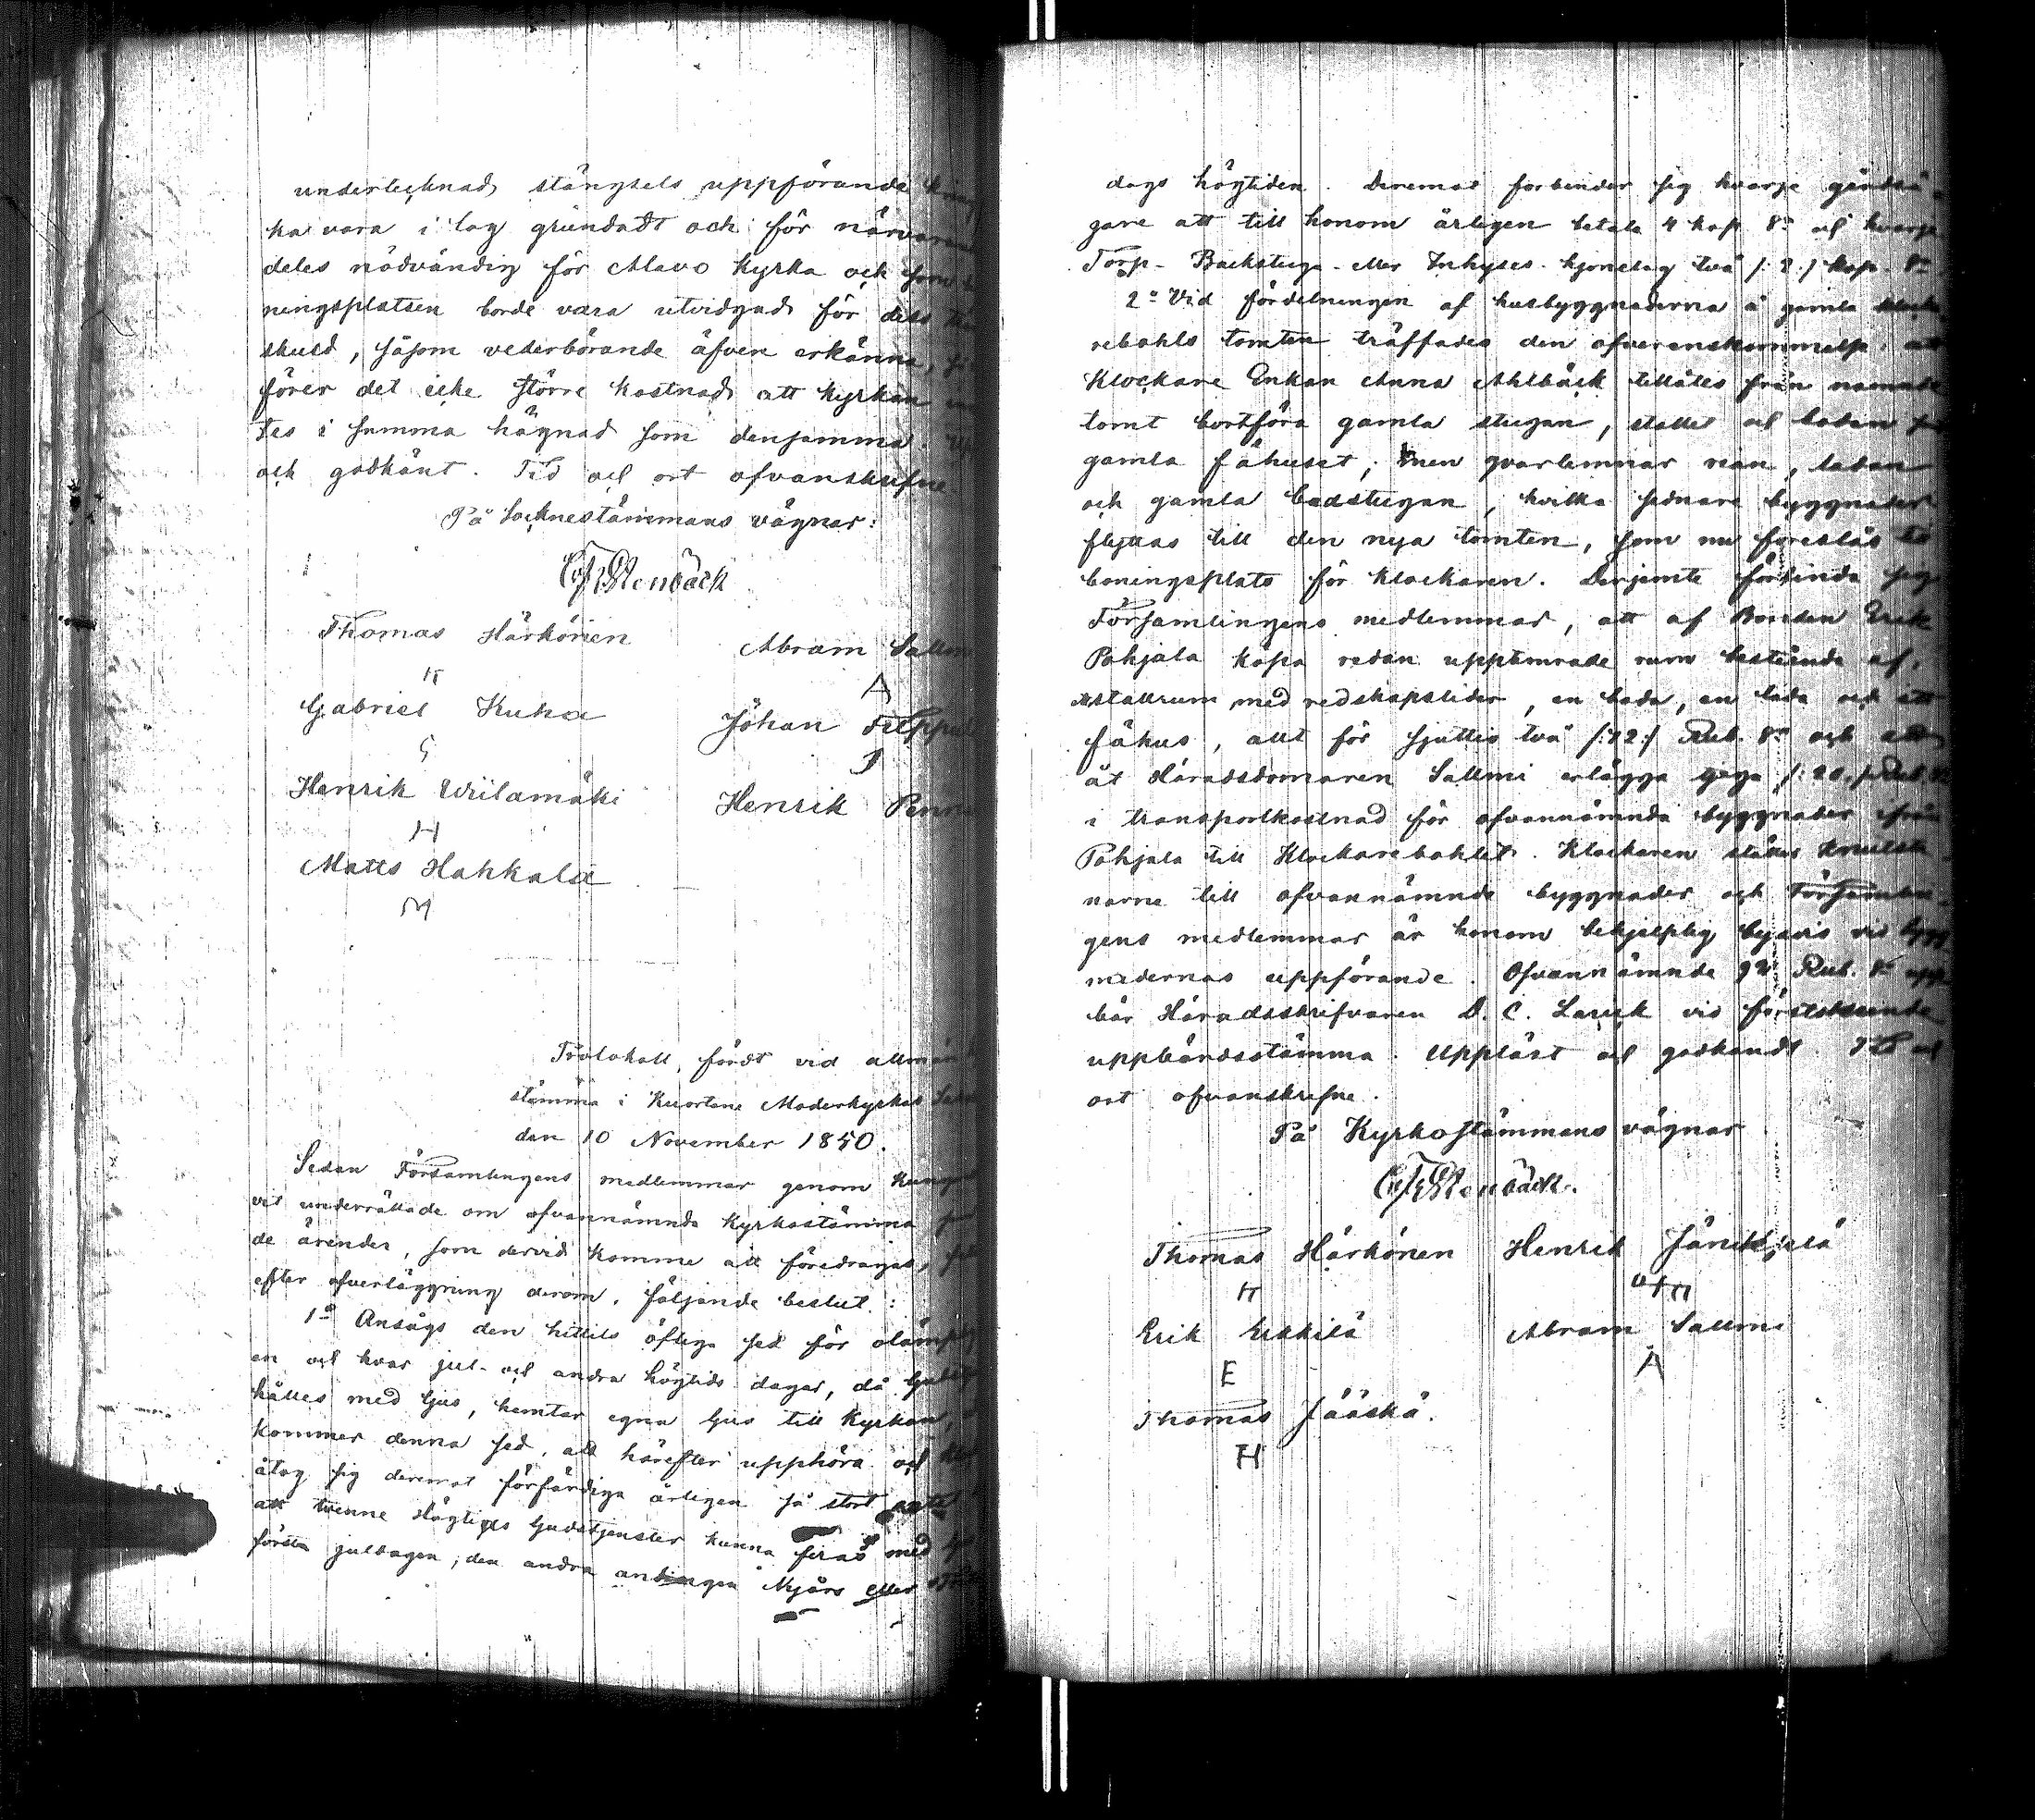 undertecknad stängsels uppförande kring
ka vara i lag grundadt och för närvaran
deles nödvändig för Alavo Kyrka och
ningsplatsen borde vara utvidgad för dess
skuld, såsom vederbörande äfven erkänna,
förer det icke större kostnad att Kyrkan
tes i samma hägnad som densamma.
och godkänt. Tid och ort ofvanskrefne
På Socknestämmans vägnar:
Stenbäck
Thomas Härkönen Abram Sallmi
H A
Gabriel Kuha Johan Filppula
G J
Henrik Wiilamäki Henrik
H
Matts Hahkala
M
Protokoll, fördt vid allmän
stämma i Kuortane Moderkyrkas
den 10 November 1850.
Sedan Församlingens medlemmar genom
vit underrättade om ofvannämnda Kyrkostämma
de ärender, som dervid komme att föredragas,
efter öfverläggning derom, följande beslut:
1o Ansågs den hittils öfliga sed för olämplig
en och hvar jul- och andra högtids dagar, då
hålles med ljus, hemtar egna ljus till Kyrkan,
kommer denna sed, att härefter upphöra och
åtog sig deremot förfärdiga årligen så stort
att tvenne Högtids Gudstjenster kunna firas med
första juldagen, den andra antingen Nyårs eller
dags högtiden. Deremot förbinder sig hvarje gårdsä-
gare att till honom årligen betala 4 kop. Sr och hvarje
Torp- Backstugu- eller Inhyses- hjonelag två /: 2 :/ kop. Sr
2o Vid fördelningen af husbyggnaderna å gamla klocka
rebohls tomten träffades den öfverenskommelse, att
Klockare Enkan Anna Ahlbäck tillåtes från nämnde
tomt bortföra gamla stugan, stallet och boden
gamla fähuset; men qvarlemnar rian, ladan
och gamla badstugan, hvilka sednare byggnader
flyttas till den nya tomten, som nu föreslås till
boningsplats för klockaren. Derjemte förbinda sig
Församlingens medlemmar, att af Bonden Erik
Pohjala köpa redan upptimrade rum bestående af,
stallrum med redskapslider, en boda, en lada och ett
fähus, allt för sjuttio två /: 72 :/ Rub. Sr och
åt Häradsdomaren Sallmi erlägga tjugu /: 20 :/ Rub. Sr
i transportkostnad för ofvannämnda byggnader ifrån
Pohjala till Klockarebohlet. Klockaren
narne till ofvannämnda byggnader och Församlin-
gens medlemmar är honom behjelplig byavis vid bygg
nadernas uppförande. Ofvannämnde 92 Rub. Sr upp-
bär Häradsskrifvaren D. C. vid förstkommande
uppbördsstämma. Uppläst och godkändt. Tid och
ort ofvanskrefne.
På Kyrkostämmans vägnar
Stenbäck.
Thomas Härkönen Henrik
H
Erik Erkkilä Abram Sallmi
E A
Thomas Jääskä.
H